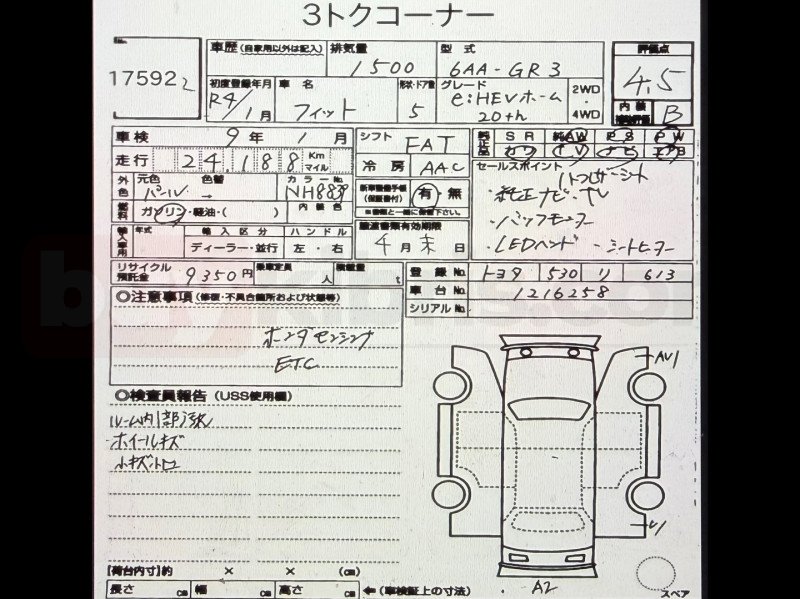 3トクコーナー
17592 2
車歴 (自家用以外は記入) 排気量 型式 評価点
1500 6AA-GR3 4.5
初度登録年月 車名 形状・ドア数 グレード
R4/1月 フィット 5 e:HEVホーム 20th 2WD・4WD
内装 B
車検 9年 1月 シフト FAT 純正品 SR 純AW PS PW
走行 24,188 Km マイル 冷房 AAC カワ TV ナビ
外色 元色 色替 カラーNo. セールスポイント
パール → NH883P 新車整備手帳(保証書付) 有・無
・純正ナビ・TV
燃料 ガソリン・軽油・( ) 内装色 ※書類と一緒に保管下さい。
・バックモニター
輸入車用 年式 輸入区分 ハンドル 譲渡書類有効期限
ディーラー・並行 左・右 4月末日 ・LEDヘッド ・シートヒーター
リサイクル預託金 9350円 乗車定員 人 積載量 t 登録No. トヨタ 530 リ 613
車台No. 1216258
シリアルNo.
◎注意事項 (修復・不具合箇所および状態等)
ホンダセンシング
ETC
◎検査員報告 (USS使用欄)
ルーム内部汚れ
ホイールキズ
小キズ凹
AU1
U1
A2
【荷台内寸】約 × × (cm)
長さ cm 幅 cm 高さ cm ←(車検証上の寸法)
スペア